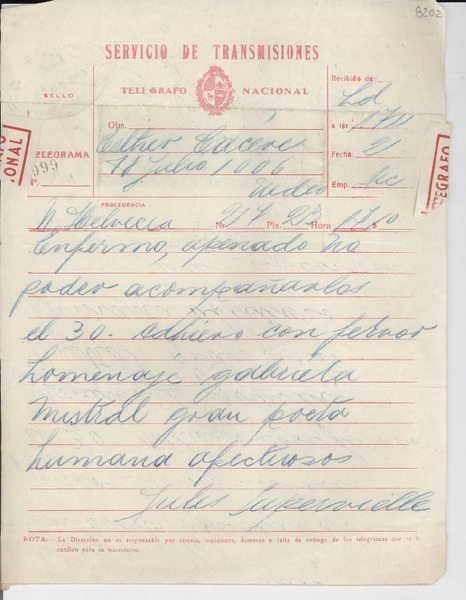 8202
SERVICIO DE TRANSMISIONES
SELLO
TELEGRAFO NACIONAL
Recibido de
Ld
a las 1711
TELEGRAMA
999
Obs.
Esther Cáceres
Fecha: 21
18 Julio 1006
Emp.
TELEGRAFO
PROCEDENCIA
N. Helvecia Nº 217 Pls. 23 Hora
Enfermo, apenado no
poder acompañarlos
el 30. adhiero con fervor
homenaje gabriela
mistral gran poeta
humana afectuosos
Jules Supervielle
NOTA:— La Dirección no es responsable por errores, omisiones, demoras o falta de entrega de los telegramas que se le
confíen para su transmisión.